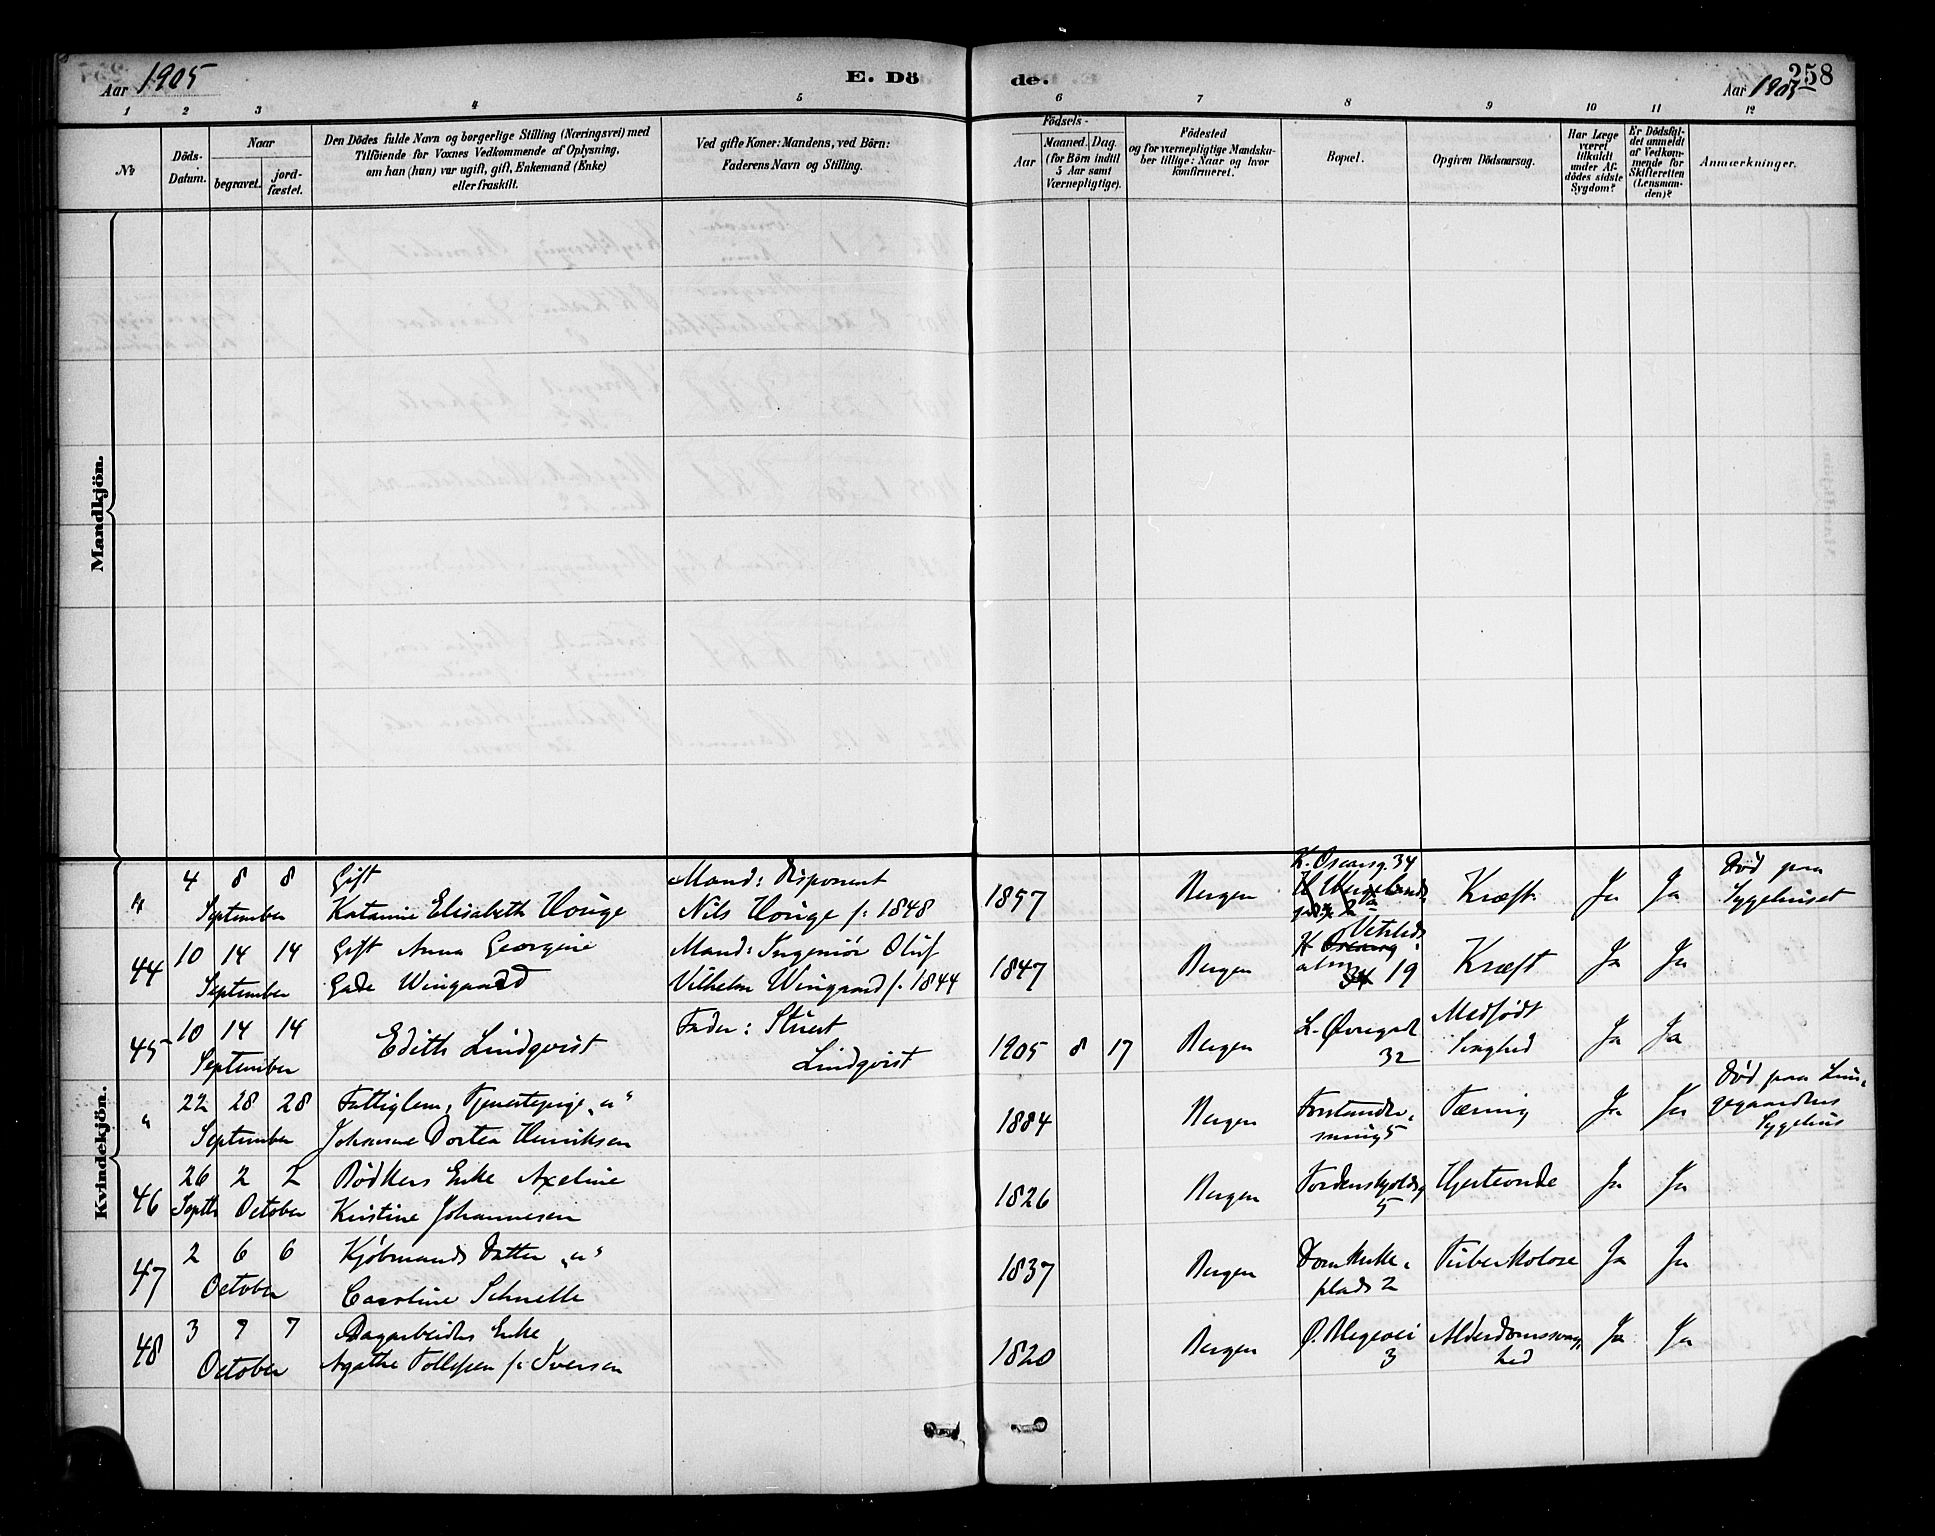 Aar 1905
E. Dö
de.
258
Aar 1905
1 2 3 4 5 6 7 8 9 10 11 12
№
Döds-
Datum.
Naar
begravet.
jord-
fæstet.
Den Dödes fulde Navn og borgerlige Stilling (Næringsvei) med
Tilföiende for Voxnes Vedkommende af Oplysning,
om han (hun) var ugift, gift, Enkemand (Enke)
eller fraskilt.
Ved gifte Koner: Mandens, ved Börn:
Faderens Navn og Stilling.
Födsels-
Aar
Maaned. Dag.
(for Börn indtil
5 Aar samt
Værnepligtige).
Födested
og for værnepligtige Mandska-
ber tillige: Naar og hvor
konfirmeret.
Bopæl.
Opgiven Dödsaarsag.
Har Læge
været
tilkaldt
under Af-
dödes sidste
Sygdom?
Er Dödsfal-
det anmeldt
af Vedkom-
mende for
Skifteretten
(Lensman-
den)?
Anmærkninger.
Mandkjön.
Kvindekjön.
" 4 8 8 Gift Mand: Disponent 1857 Bergen K. Oscarsg. 34 Kræft Ja Ja Död paa
September Katarine Elisabeth Houge Nils Houge f. 1848 Sygehuset
44 10 14 14 Gift Anna Georgine Mand: Ingeniör Oluf 1847 Bergen Vetrlids Kræft Ja Ja
September Gade Wingaard Vilhelm Wingaard f. 1844 alm 19
45 10 14 14 Edith Lindqvist Fader: Stuert 1905 8 17 Bergen L. Øvregade Medfödt Ja Ja
September Lindqvist 32 Svaghed
" 22 28 28 Fattiglem, Tjenestepige "u" 1884 Bergen Forstander- Tæring Ja Ja Död paa Lun-
September Johanne Dortea Henriksen smug 5 gegaardens
Sygehus
46 26 2 2 Bödkers Enke Axeline 1826 Bergen Tordenskjoldsg Hjerteonde Ja Ja
Septb October Kristine Johannesen 5
47 2 6 6 Kjöbmands Datter "u" 1837 Bergen Domkirke- Tuberkolose Ja Ja
October Caroline Schnelle plads 2
48 3 7 7 Dagarbeiders Enke 1820 Bergen Ø. Blegevei Alderdomssvag- Ja Ja
October Agathe Tollefsen f. Iversen 3 hed